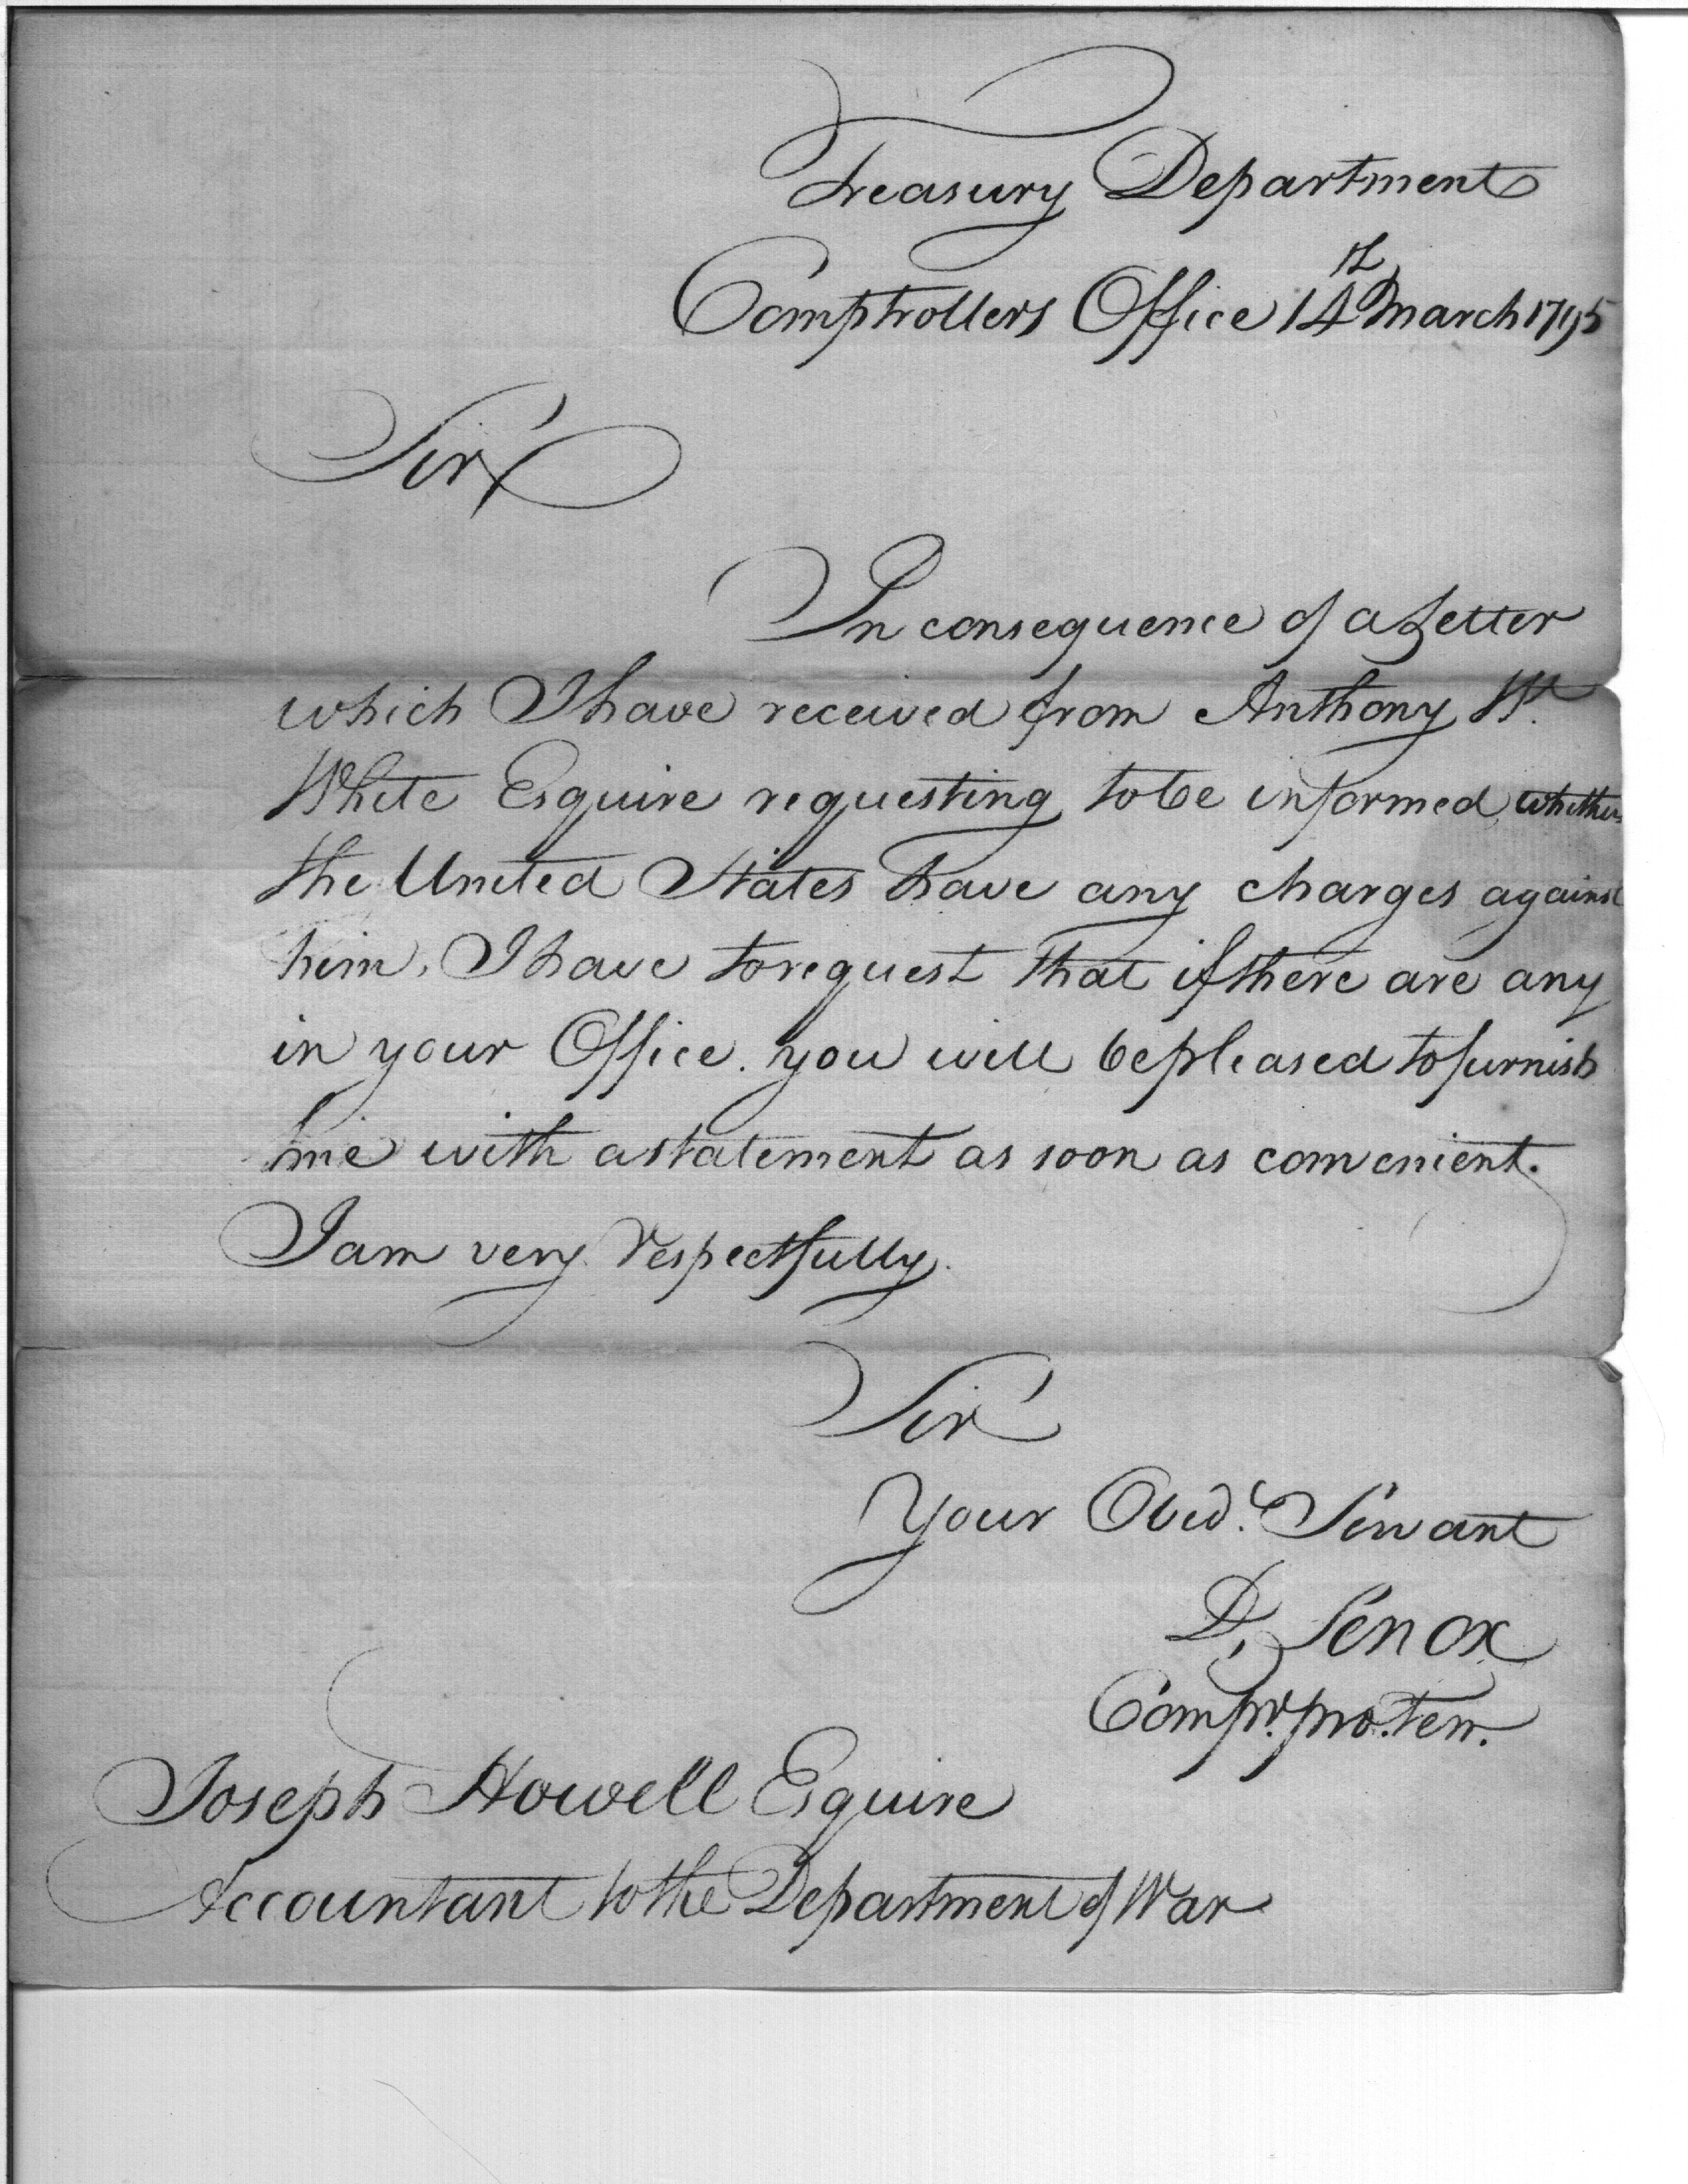 Treasury Department
Comptrollers Office 14th March 1795
Sir
In consequence of a Letter
which I have received from Anthony W.
White Esquire requesting to be informed whether
the United States have any charges against
him, I have to request that if there are any
in your Office. you will be pleased to furnish
me with a statement as soon as convenient.
I am very respectfully.
Sir
Your Obed.t Servant
D, Lenox
Compr. pro. tem.
Joseph Howell Esquire
Accountant to the Department of War